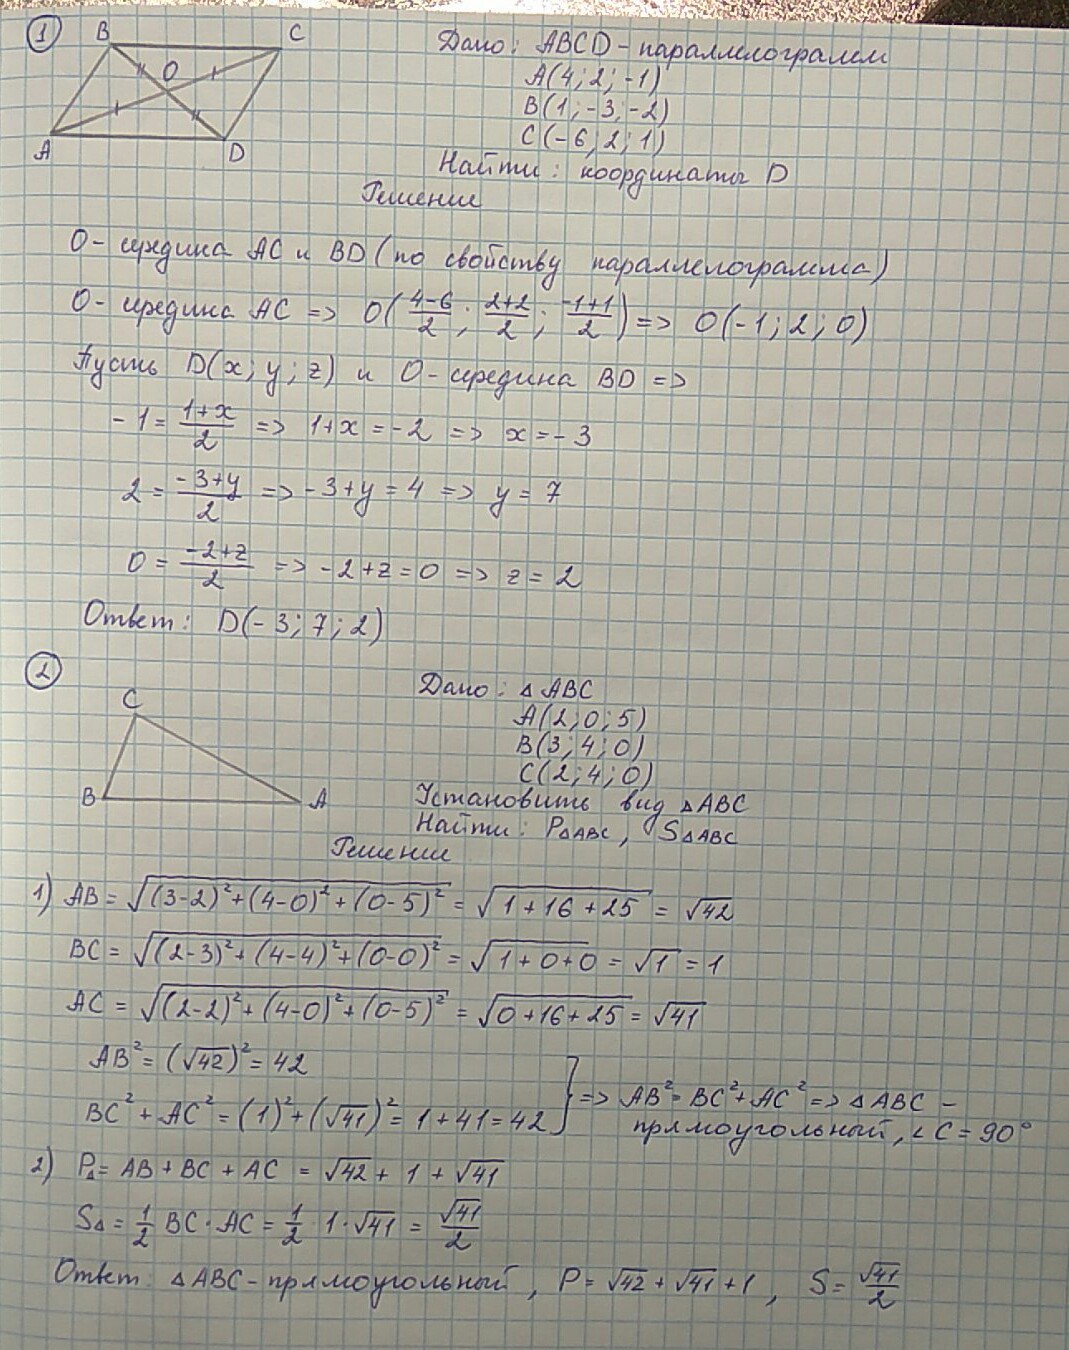 1
B C
O
A D
Дано: ABCD - параллелограмм
A(4; 2; -1)
B(1; -3; -2)
C(-6; 2; 1)
Найти: координаты D
Решение
O - середина AC и BD (по свойству параллелограмма)
O - середина AC => O((4-6)/2; (2+2)/2; (-1+1)/2) => O(-1; 2; 0)
Пусть D(x; y; z) и O - середина BD =>
-1 = (1+x)/2 => 1+x = -2 => x = -3
2 = (-3+y)/2 => -3+y = 4 => y = 7
0 = (-2+z)/2 => -2+z = 0 => z = 2
Ответ: D(-3; 7; 2)
2
C
B A
Дано: △ABC
A(2; 0; 5)
B(3; 4; 0)
C(2; 4; 0)
Установить вид △ABC
Найти: P△ABC, S△ABC
Решение
1) AB = √((3-2)²+(4-0)²+(0-5)²) = √(1+16+25) = √42
BC = √((2-3)²+(4-4)²+(0-0)²) = √(1+0+0) = √1 = 1
AC = √((2-2)²+(4-0)²+(0-5)²) = √(0+16+25) = √41
AB² = (√42)² = 42
BC² + AC² = (1)²+(√41)² = 1+41 = 42 } => AB² = BC²+AC² => △ABC -
прямоугольный, ∠C = 90°
2) P△ = AB + BC + AC = √42 + 1 + √41
S△ = 1/2 BC · AC = 1/2 · 1 · √41 = √41/2
Ответ: △ABC - прямоугольный, P = √42 + √41 + 1, S = √41/2